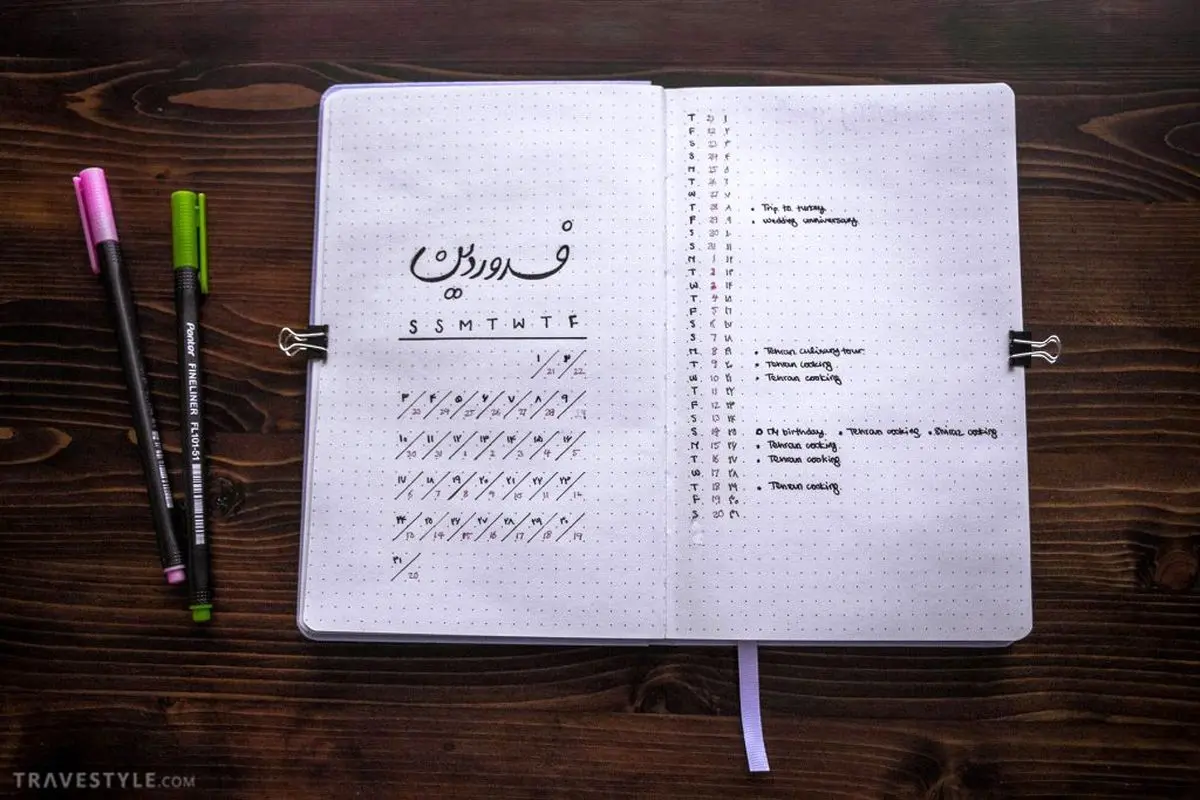 Pontor FINELINER FL101-51
فروردین
S S M T W T F
۱/21 ۲/22
۳/23 ۴/24 ۵/25 ۶/26 ۷/27 ۸/28 ۹/29
۱۰/30 ۱۱/31 ۱۲/1 ۱۳/2 ۱۴/3 ۱۵/4 ۱۶/5
۱۷/6 ۱۸/7 ۱۹/8 ۲۰/9 ۲۱/10 ۲۲/11 ۲۳/12
۲۴/13 ۲۵/14 ۲۶/15 ۲۷/16 ۲۸/17 ۲۹/18 ۳۰/19
۳۱/20
T 21 ۱
F 22 ۲
S 23 ۳
S 24 ۴
M 25 ۵
T 26 ۶
W 27 ۷
T 28 ۸ • Trip to turkey
F 29 ۹ • wedding anniversary
S 30 ۱۰
S 31 ۱۱
M 1 ۱۲
T 2 ۱۳
W 3 ۱۴
T 4 ۱۵
F 5 ۱۶
S 6 ۱۷
S 7 ۱۸
M 8 ۱۹ • Tehran culinary tour
T 9 ۲۰ • Tehran cooking
W 10 ۲۱ • Tehran cooking
T 11 ۲۲
F 12 ۲۳
S 13 ۲۴
S 14 ۲۵ O My birthday • Tehran cooking • Shiraz cooking
M 15 ۲۶ • Tehran cooking
T 16 ۲۷ • Tehran cooking
W 17 ۲۸
T 18 ۲۹ • Tehran cooking
F 19 ۳۰
S 20 ۳۱
TRAVESTYLE.COM